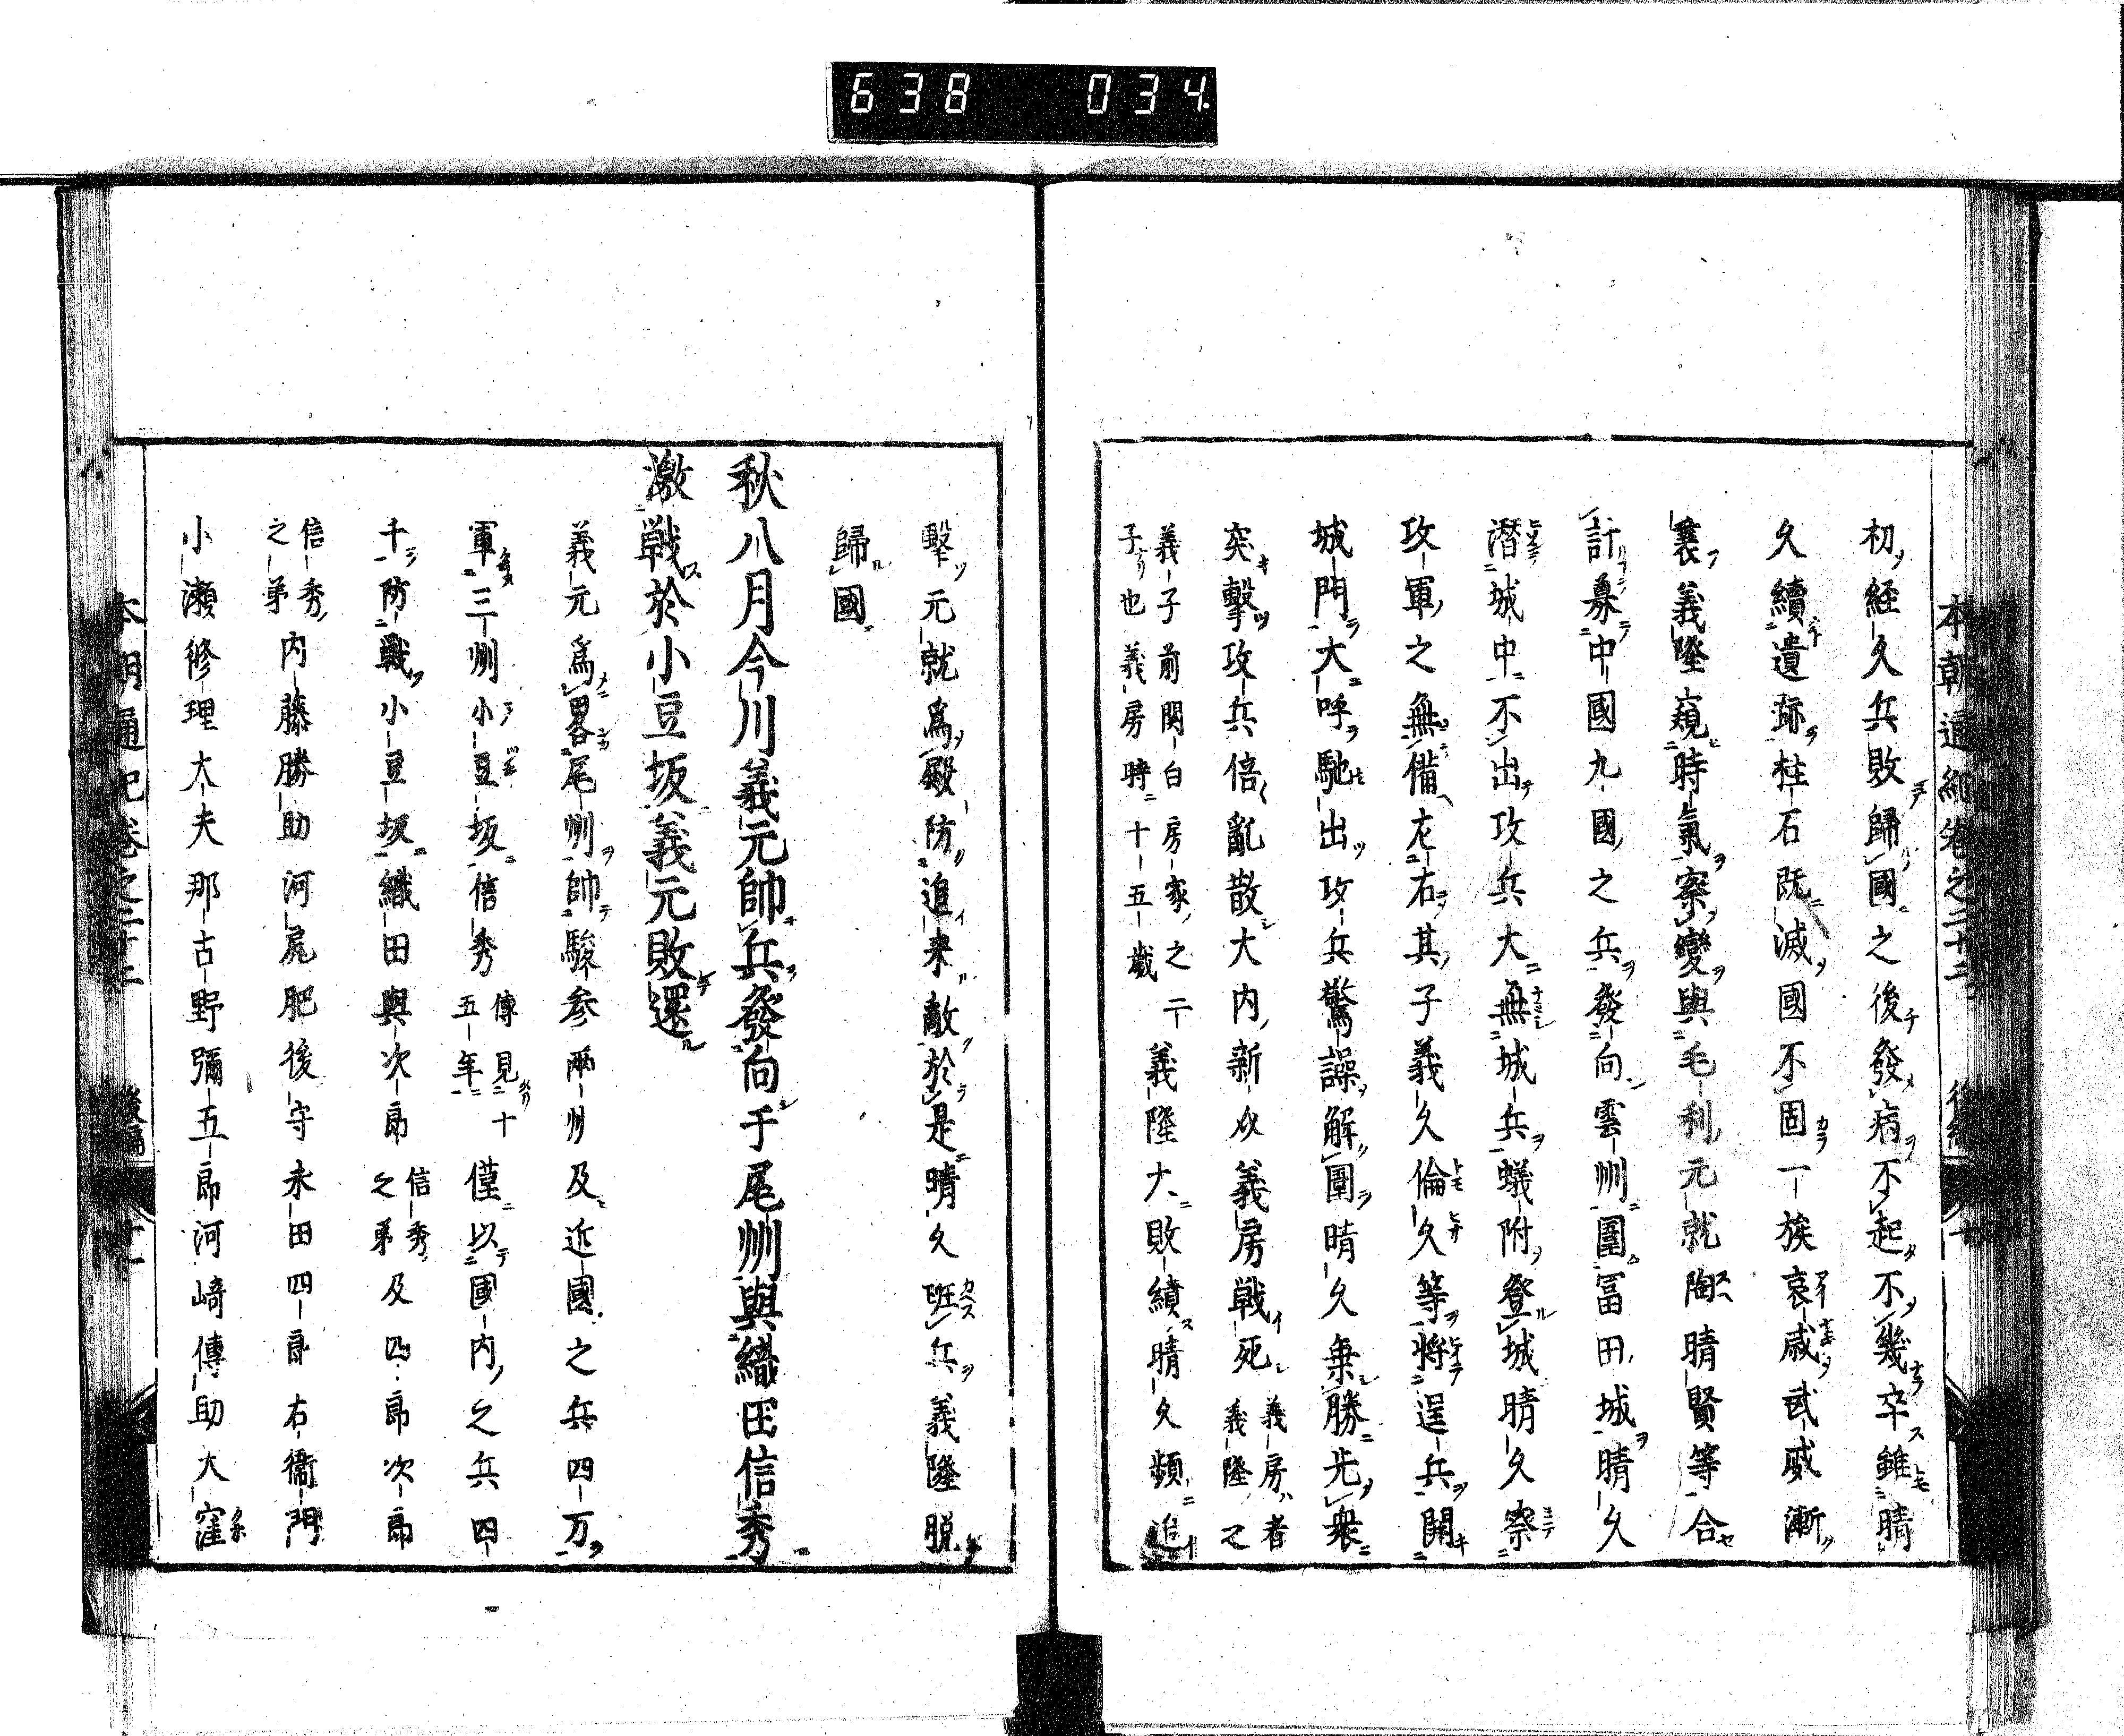 638 034
本朝通紀卷之二十二 後編
初經久兵敗歸國之後發病不起不幾卒雖晴
久續遺跡柱石既滅國不固一族哀戚武威漸
襄義隆窺時氣察變與毛利元就陶晴賢等合
計募中國九國之兵發向雲州圍冨田城晴久
潛城中不出攻兵大無城兵蟻附登城晴久察
攻軍之無備左右其子義久倫久等將逞兵開
城門大呼馳出攻兵驚譟解圍晴久乗勝先衆
突擊攻兵倍亂散大内新从義房戦死義房者義隆之
義子前関白房家之二子也義房時十五歳義隆大敗績晴久頻追
擊元就爲殿防追来敵於是晴久班兵義隆脱
歸國
秋八月今川義元帥兵發向于尾州與織田信秀
激戦於小豆坂義元敗還
義元爲畧尾州帥駿参兩州及近國之兵四万
軍三州小豆坂信秀傳見十五年僅以國内之兵四
千防戰小豆坂織田與次郎信秀之弟及四郎次郎
信秀之弟内藤勝助河尻肥後守永田四郎右衞門
小瀬修理大夫那古野彌五郎河崎傳助大窪
本朝通紀卷之二十二 後編